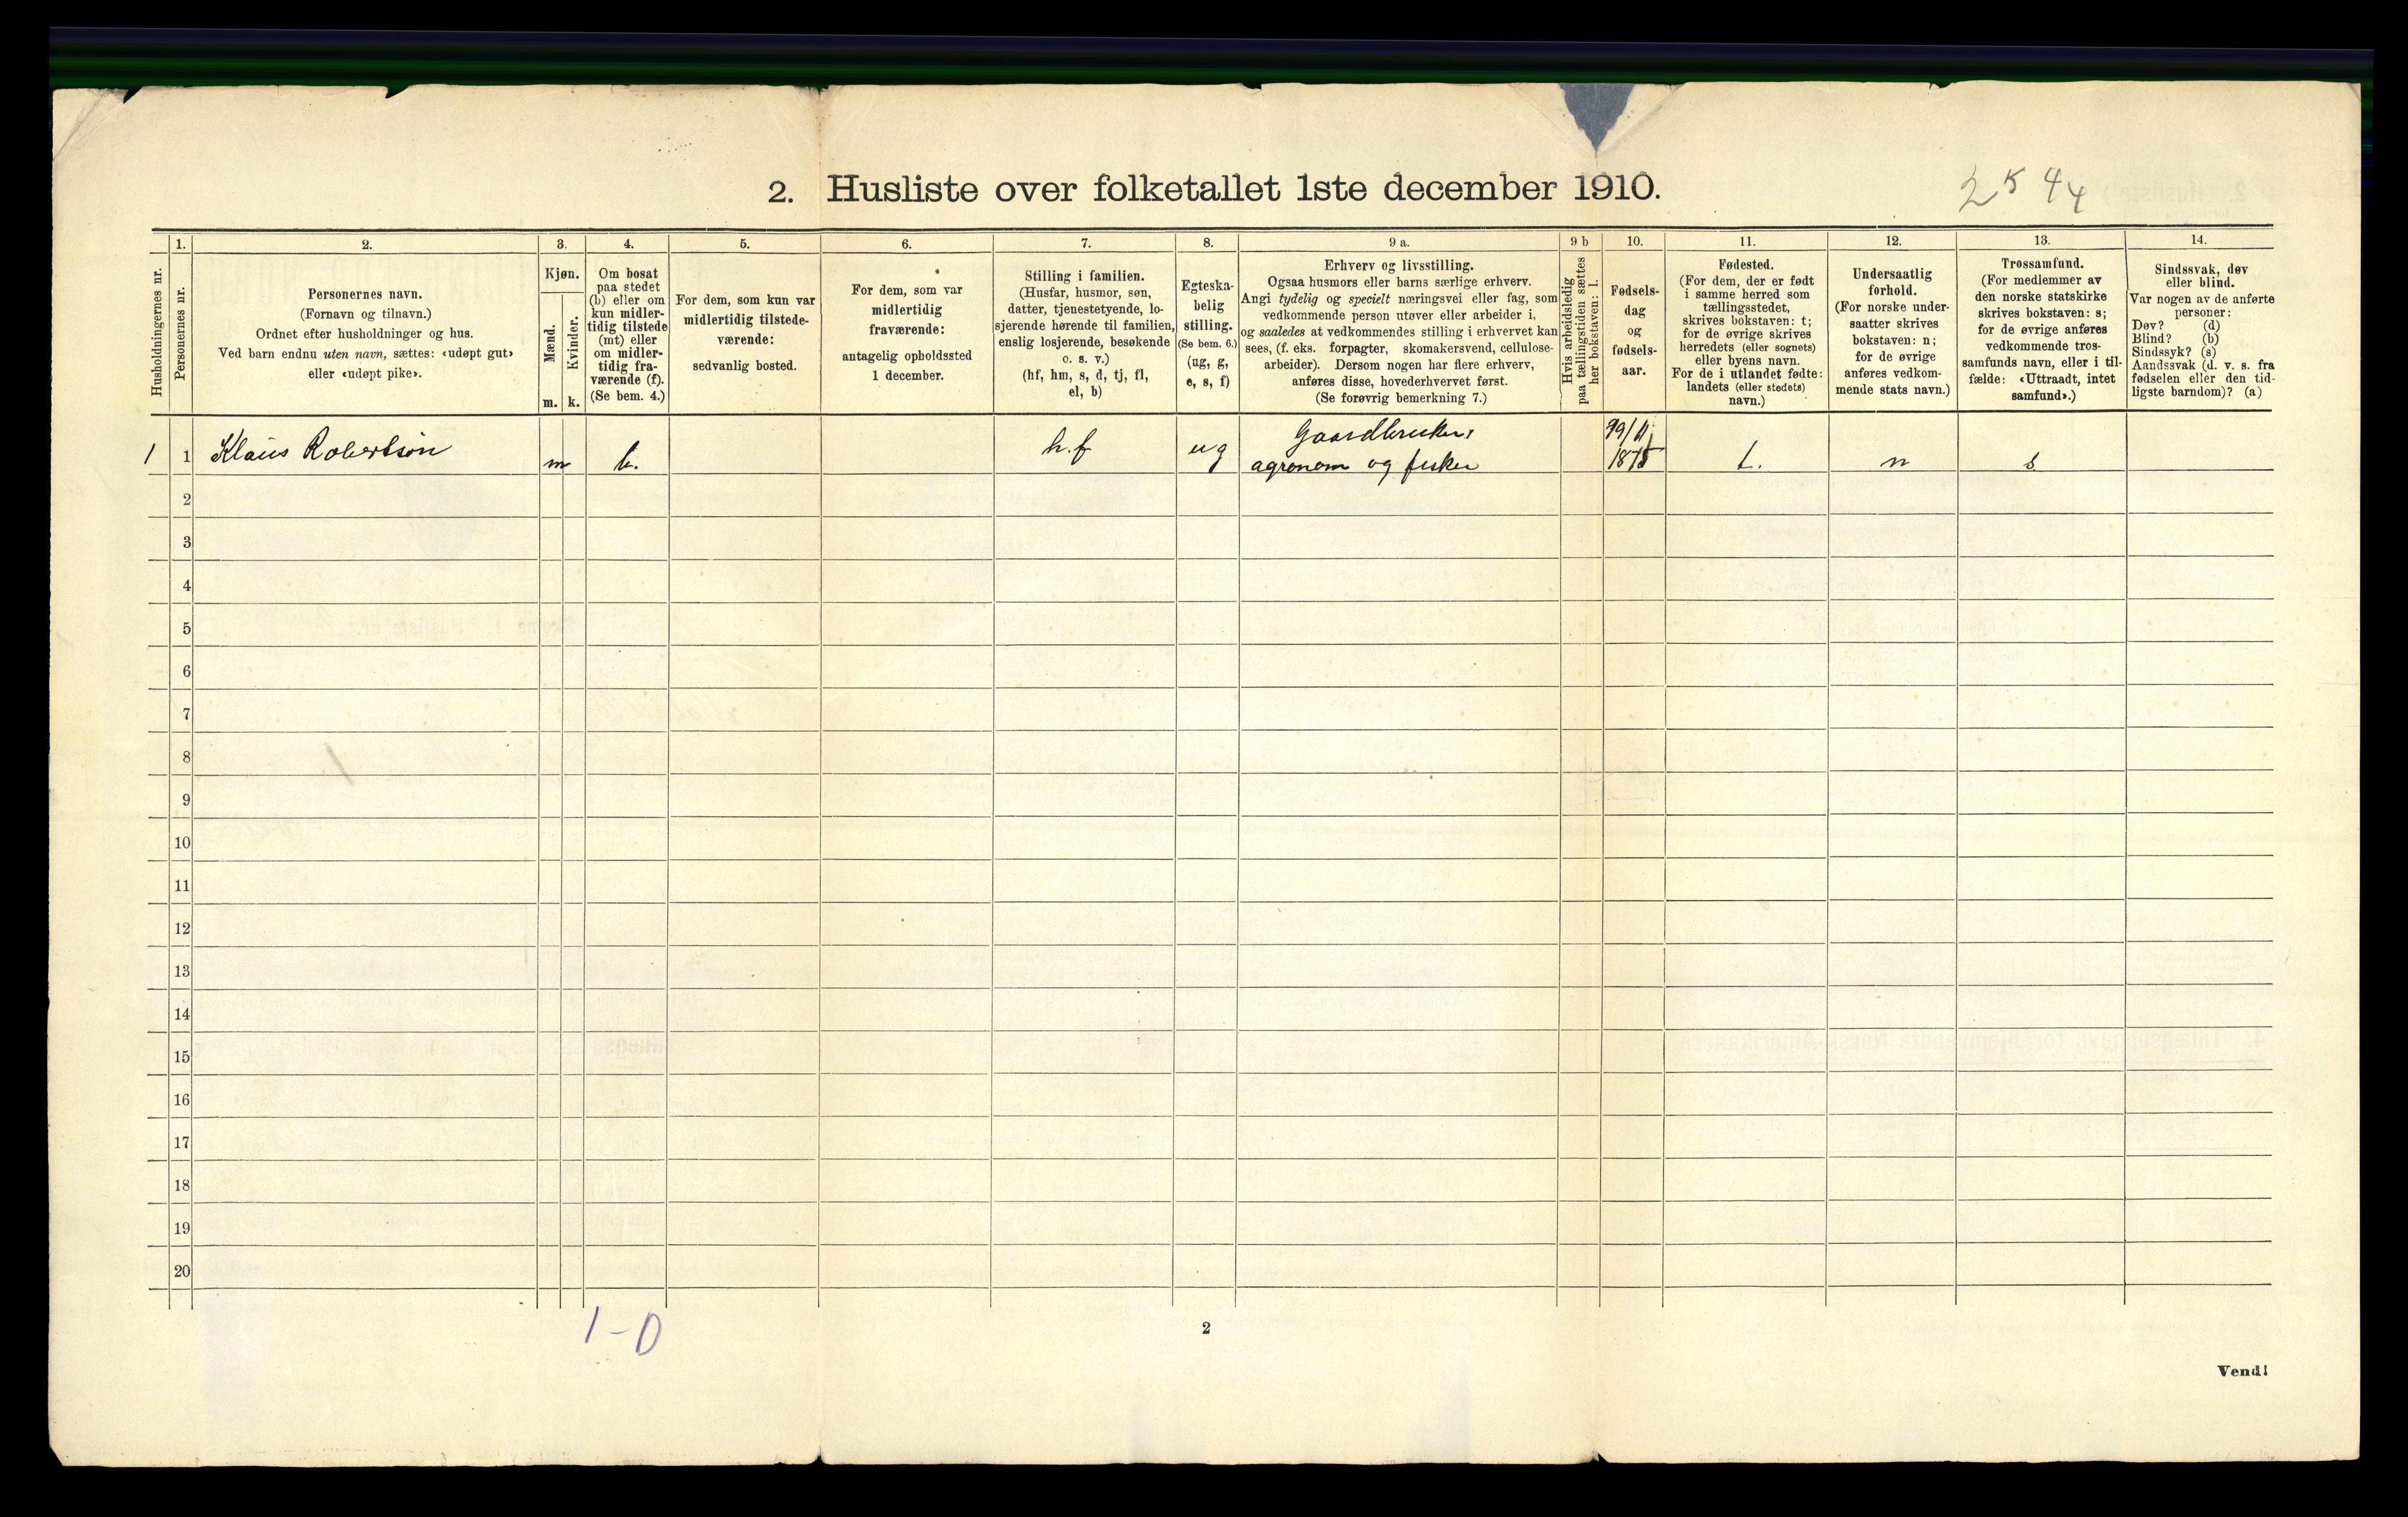 2. Husliste over folketallet 1ste december 1910.
2 5 44
Husholdningernes nr.
1.
Personernes nr.
2.
Personernes navn.
(Fornavn og tilnavn.)
Ordnet efter husholdninger og hus.
Ved barn endnu uten navn, sættes: «udøpt gut»
eller «udøpt pike».
3.
Kjøn.
Mænd.
m.
Kvinder.
k.
4.
Om bosat
paa stedet
(b) eller om
kun midler-
tidig tilstede
(mt) eller
om midler-
tidig fra-
værende (f).
(Se bem. 4.)
5.
For dem, som kun var
midlertidig tilstede-
værende:
sedvanlig bosted.
6.
For dem, som var
midlertidig
fraværende:
antagelig opholdssted
1 december.
7.
Stilling i familien.
(Husfar, husmor, søn,
datter, tjenestetyende, lo-
sjerende hørende til familien,
enslig losjerende, besøkende
o. s. v.)
(hf, hm, s, d, tj, fl,
el, b)
8.
Egteska-
belig
stilling.
(Se bem. 6.)
(ug, g,
e, s, f)
9 a.
Erhverv og livsstilling.
Ogsaa husmors eller barns særlige erhverv.
Angi tydelig og specielt næringsvei eller fag, som
vedkommende person utøver eller arbeider i,
og saaledes at vedkommendes stilling i erhvervet kan
sees, (f. eks. forpagter, skomakersvend, cellulose-
arbeider). Dersom nogen har flere erhverv,
anføres disse, hovederhvervet først.
(Se forøvrig bemerkning 7.)
9 b
Hvis arbeidsledig
paa tællingstiden sættes
her bokstaven: l.
10.
Fødsels-
dag
og
fødsels-
aar.
11.
Fødested.
(For dem, der er født
i samme herred som
tællingsstedet,
skrives bokstaven: t;
for de øvrige skrives
herredets (eller sognets)
eller byens navn.
For de i utlandet fødte:
landets (eller stedets)
navn.)
12.
Undersaatlig
forhold.
(For norske under-
saatter skrives
bokstaven: n;
for de øvrige
anføres vedkom-
mende stats navn.)
13.
Trossamfund.
(For medlemmer av
den norske statskirke
skrives bokstaven: s;
for de øvrige anføres
vedkommende tros-
samfunds navn, eller i til-
fælde: «Uttraadt, intet
samfund».)
14.
Sindssvak, døv
eller blind.
Var nogen av de anførte
personer:
Døv? (d)
Blind? (b)
Sindssyk? (s)
Aandssvak (d. v. s. fra
fødselen eller den tid-
ligste barndom)? (a)
1 1 Klaus Robertson m b. h.f ug Gaardbruker
agronom og fisker 1875 t. n s
2
3
4
5
6
7
8
9
10
11
12
13
14
15
16
17
18
19
20
1 - 0
2
Vend!